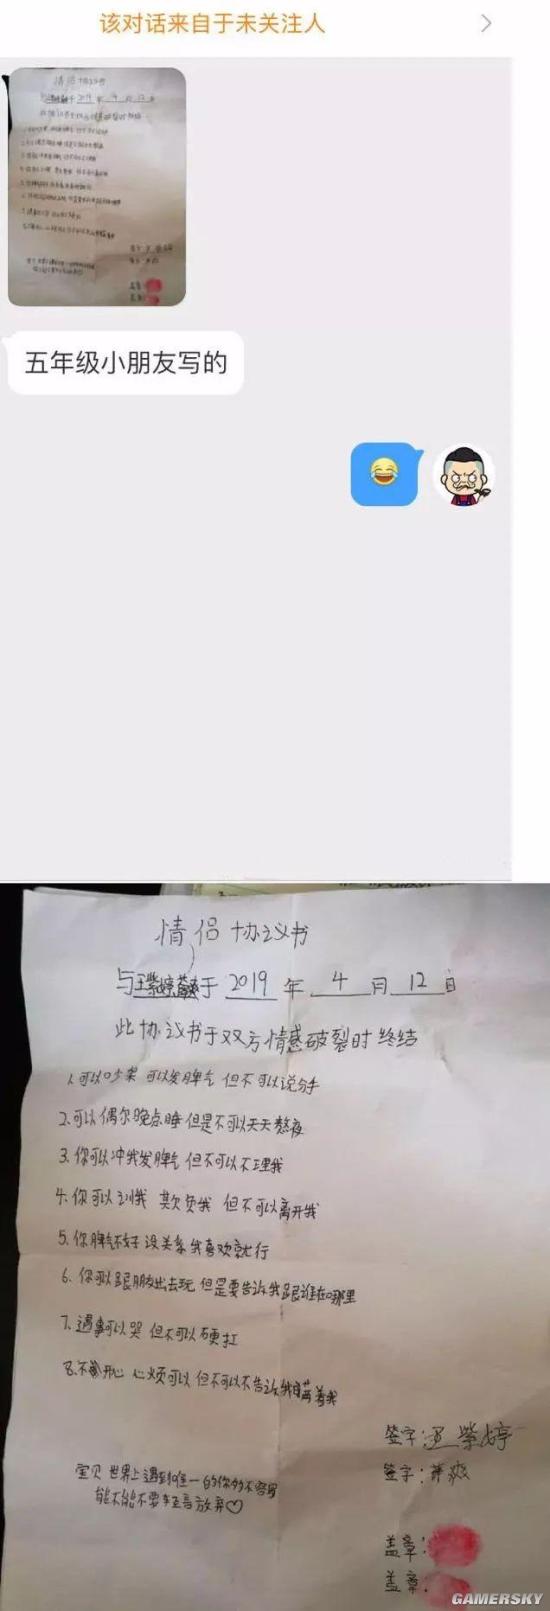 该对话来自于未关注人
情侣协议书
2019年4月12日
五年级小朋友写的
情侣协议书
与王紫婷 于 2019 年 4 月 12 日
此协议书于双方情感破裂时终结
1.可以吵架 可以发脾气 但不可以说分手
2.可以偶尔晚点睡但是不可以天天熬夜
3.你可以冲我发脾气 但不可以不理我
4.你可以训我 欺负我 但不可以离开我
5.你脾气不好 没关系 我喜欢就行
6.你可以跟朋友出去玩 但是要告诉我跟谁在哪里
7.遇事可以哭 但不可以硬扛
8.不开心 心烦可以 但不可以不告诉我瞒着我
签字:王紫婷
签字:萧爽
宝贝 世界上遇到唯一的你多不容易
能不能不要轻言放弃♡
盖章:
盖章:
GAMERSKY